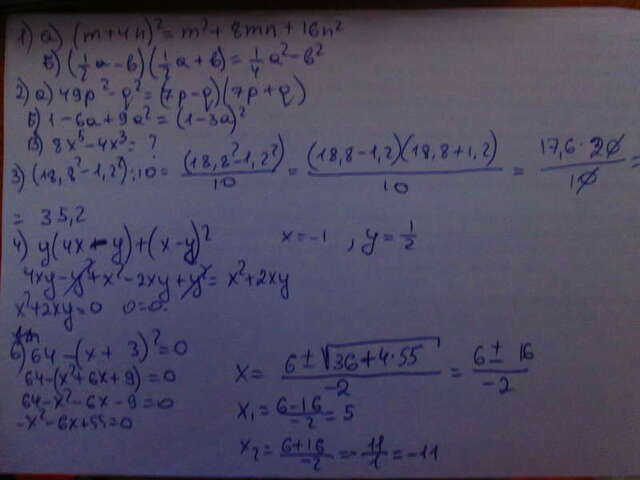 1) а) (m+4n)² = m² + 8mn + 16n²
б) (½a-б)(½a+б) = ¼a²-б²
2) а) 49p²-g² = (7p-g)(7p+g)
б) 1-6a+9a² = (1-3a)²
в) 8x⁵-4x³ = ?
3) (18,8²-1,2²):10 = (18,8²-1,2²)/10 = (18,8-1,2)(18,8+1,2)/10 = 17,6·20/10 =
= 35,2
4) y(4x-y)+(x-y)² x=-1, y=½
4xy-y²+x²-2xy+y² = x²+2xy
x²+2xy=0 0=0.
6) 64-(x+3)²=0
64-(x²+6x+9)=0
64-x²-6x-9=0
-x²-6x+55=0
x = 6±√36+4·55/-2 = 6±16/-2
x₁ = 6-16/-2 = 5
x₂ = 6+16/-2 = -11